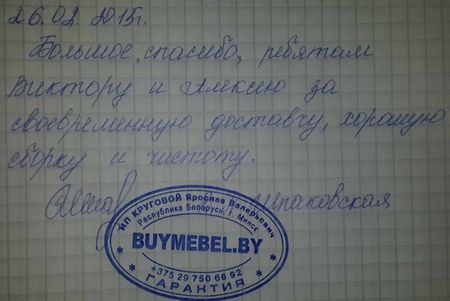 26.02.2015г.
Большое "спасибо" ребятам
Виктору и Алексею за
своевременную доставку, хорошую
сборку и чистоту.
Шпаковская
ИП КРУГОВОЙ Ярослав Валерьевич
Республика Беларусь, г. Минск
BUYMEBEL.BY
+375 29 750 66 92
ГАРАНТИЯ